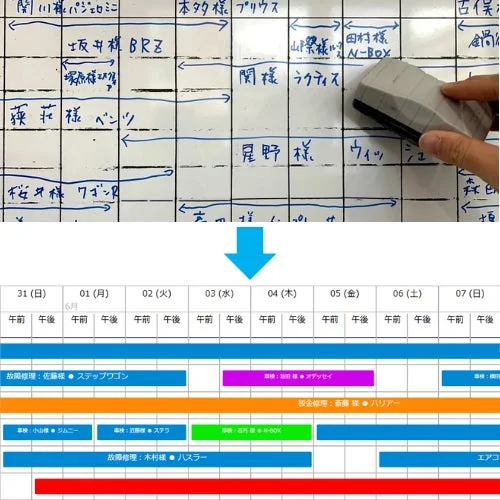 関川様パジェロミニ
本多様 プリウス
坂井様 BRZ
田村様
N-BOX
関様 ラクティス
様 ベンツ
星野様 ウィッシュ
桜井様 ワゴンR
31 (日) 01 (月) 02 (火) 03 (水) 04 (木) 05 (金) 06 (土) 07 (日)
6月
午前 午後 午前 午後 午前 午後 午前 午後 午前 午後 午前 午後 午前 午後 午前 午後
故障修理：佐藤様 ● ステップワゴン
車検： 様 ● オデッセイ
車検：
鈑金修理：斎藤 様 ● ハリアー
車検：小山様 ● ジムニー
車検：近藤様 ● ステラ
車検： 様 ● N-BOX
故障修理：木村様 ● ハスラー
エアコ